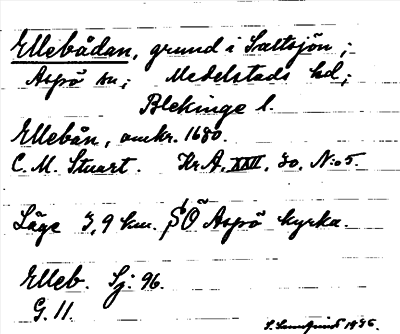 Ellebådan, grund i Saltsjön;
Aspö sn; Medelstads hd;
Blekinge l.
Ellebån, omkr. 1680.
C. M. Stuart. Kr.A. XXII, 30, N:o 5.
Läge 3,9 km. SÖ Aspö kyrka.
Elleb. Sj: 96.
G. 11.
1935.